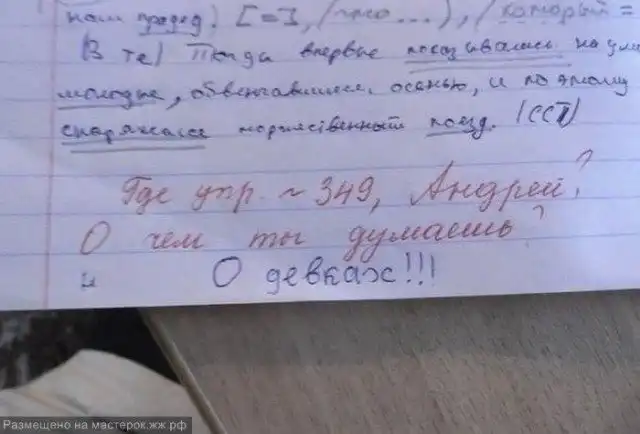 наш прадед. [=], (что...), (который =
(В те) Тогда впервые показывались на ули
молодые, обвенчавшиеся осенью, и поэтому
снаряжался торжественный поезд. (ССП)
Где упр. ~ 349, Андрей?
О чем ты думаешь?
О девках!!!
Размещено на мастерок.жж.рф